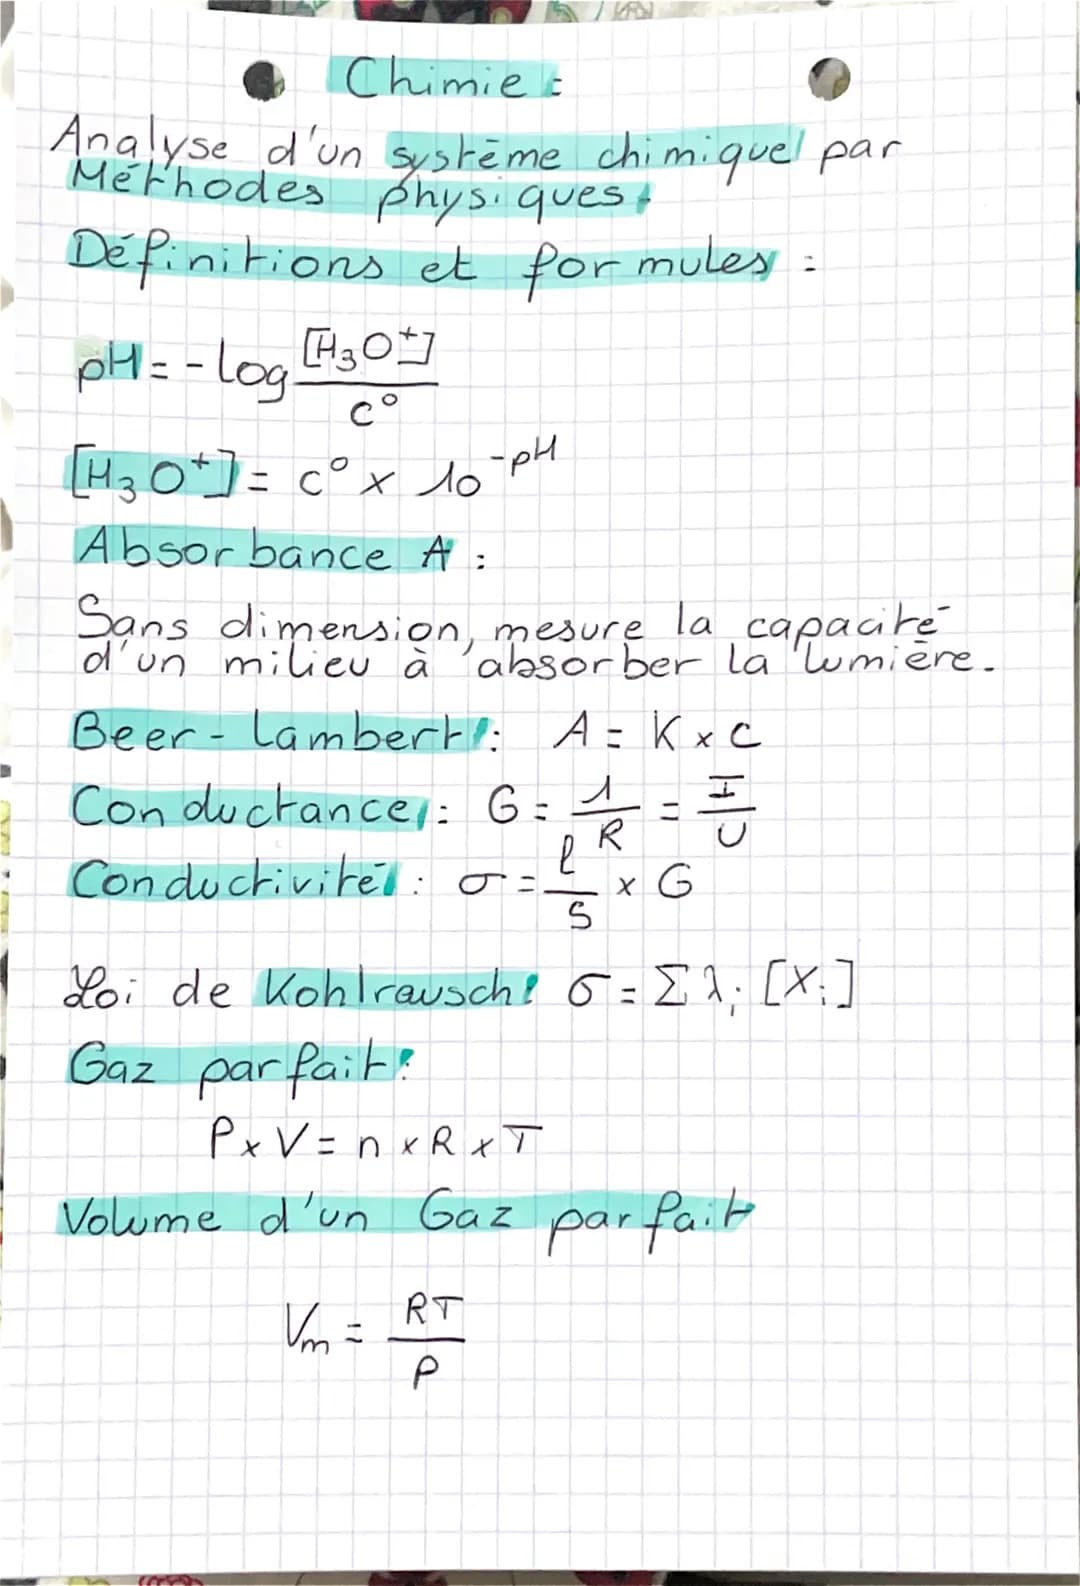 Chimie :
Analyse d'un système chimique par
Méthodes physiques.
Définitions et formules :
pH = - log [H₃O⁺] / c°
[H₃O⁺] = c° × 10⁻ᵖᴴ
Absorbance A :
Sans dimension, mesure la capacité
d'un milieu à absorber la lumière.
Beer - Lambert : A = K × C
Conductance : G = 1/R = I/U
Conductivité : σ = l/S × G
Loi de Kohlrausch : σ = Σ λᵢ [Xᵢ]
Gaz parfait :
P × V = n × R × T
Volume d'un Gaz parfait
Vm = RT / P